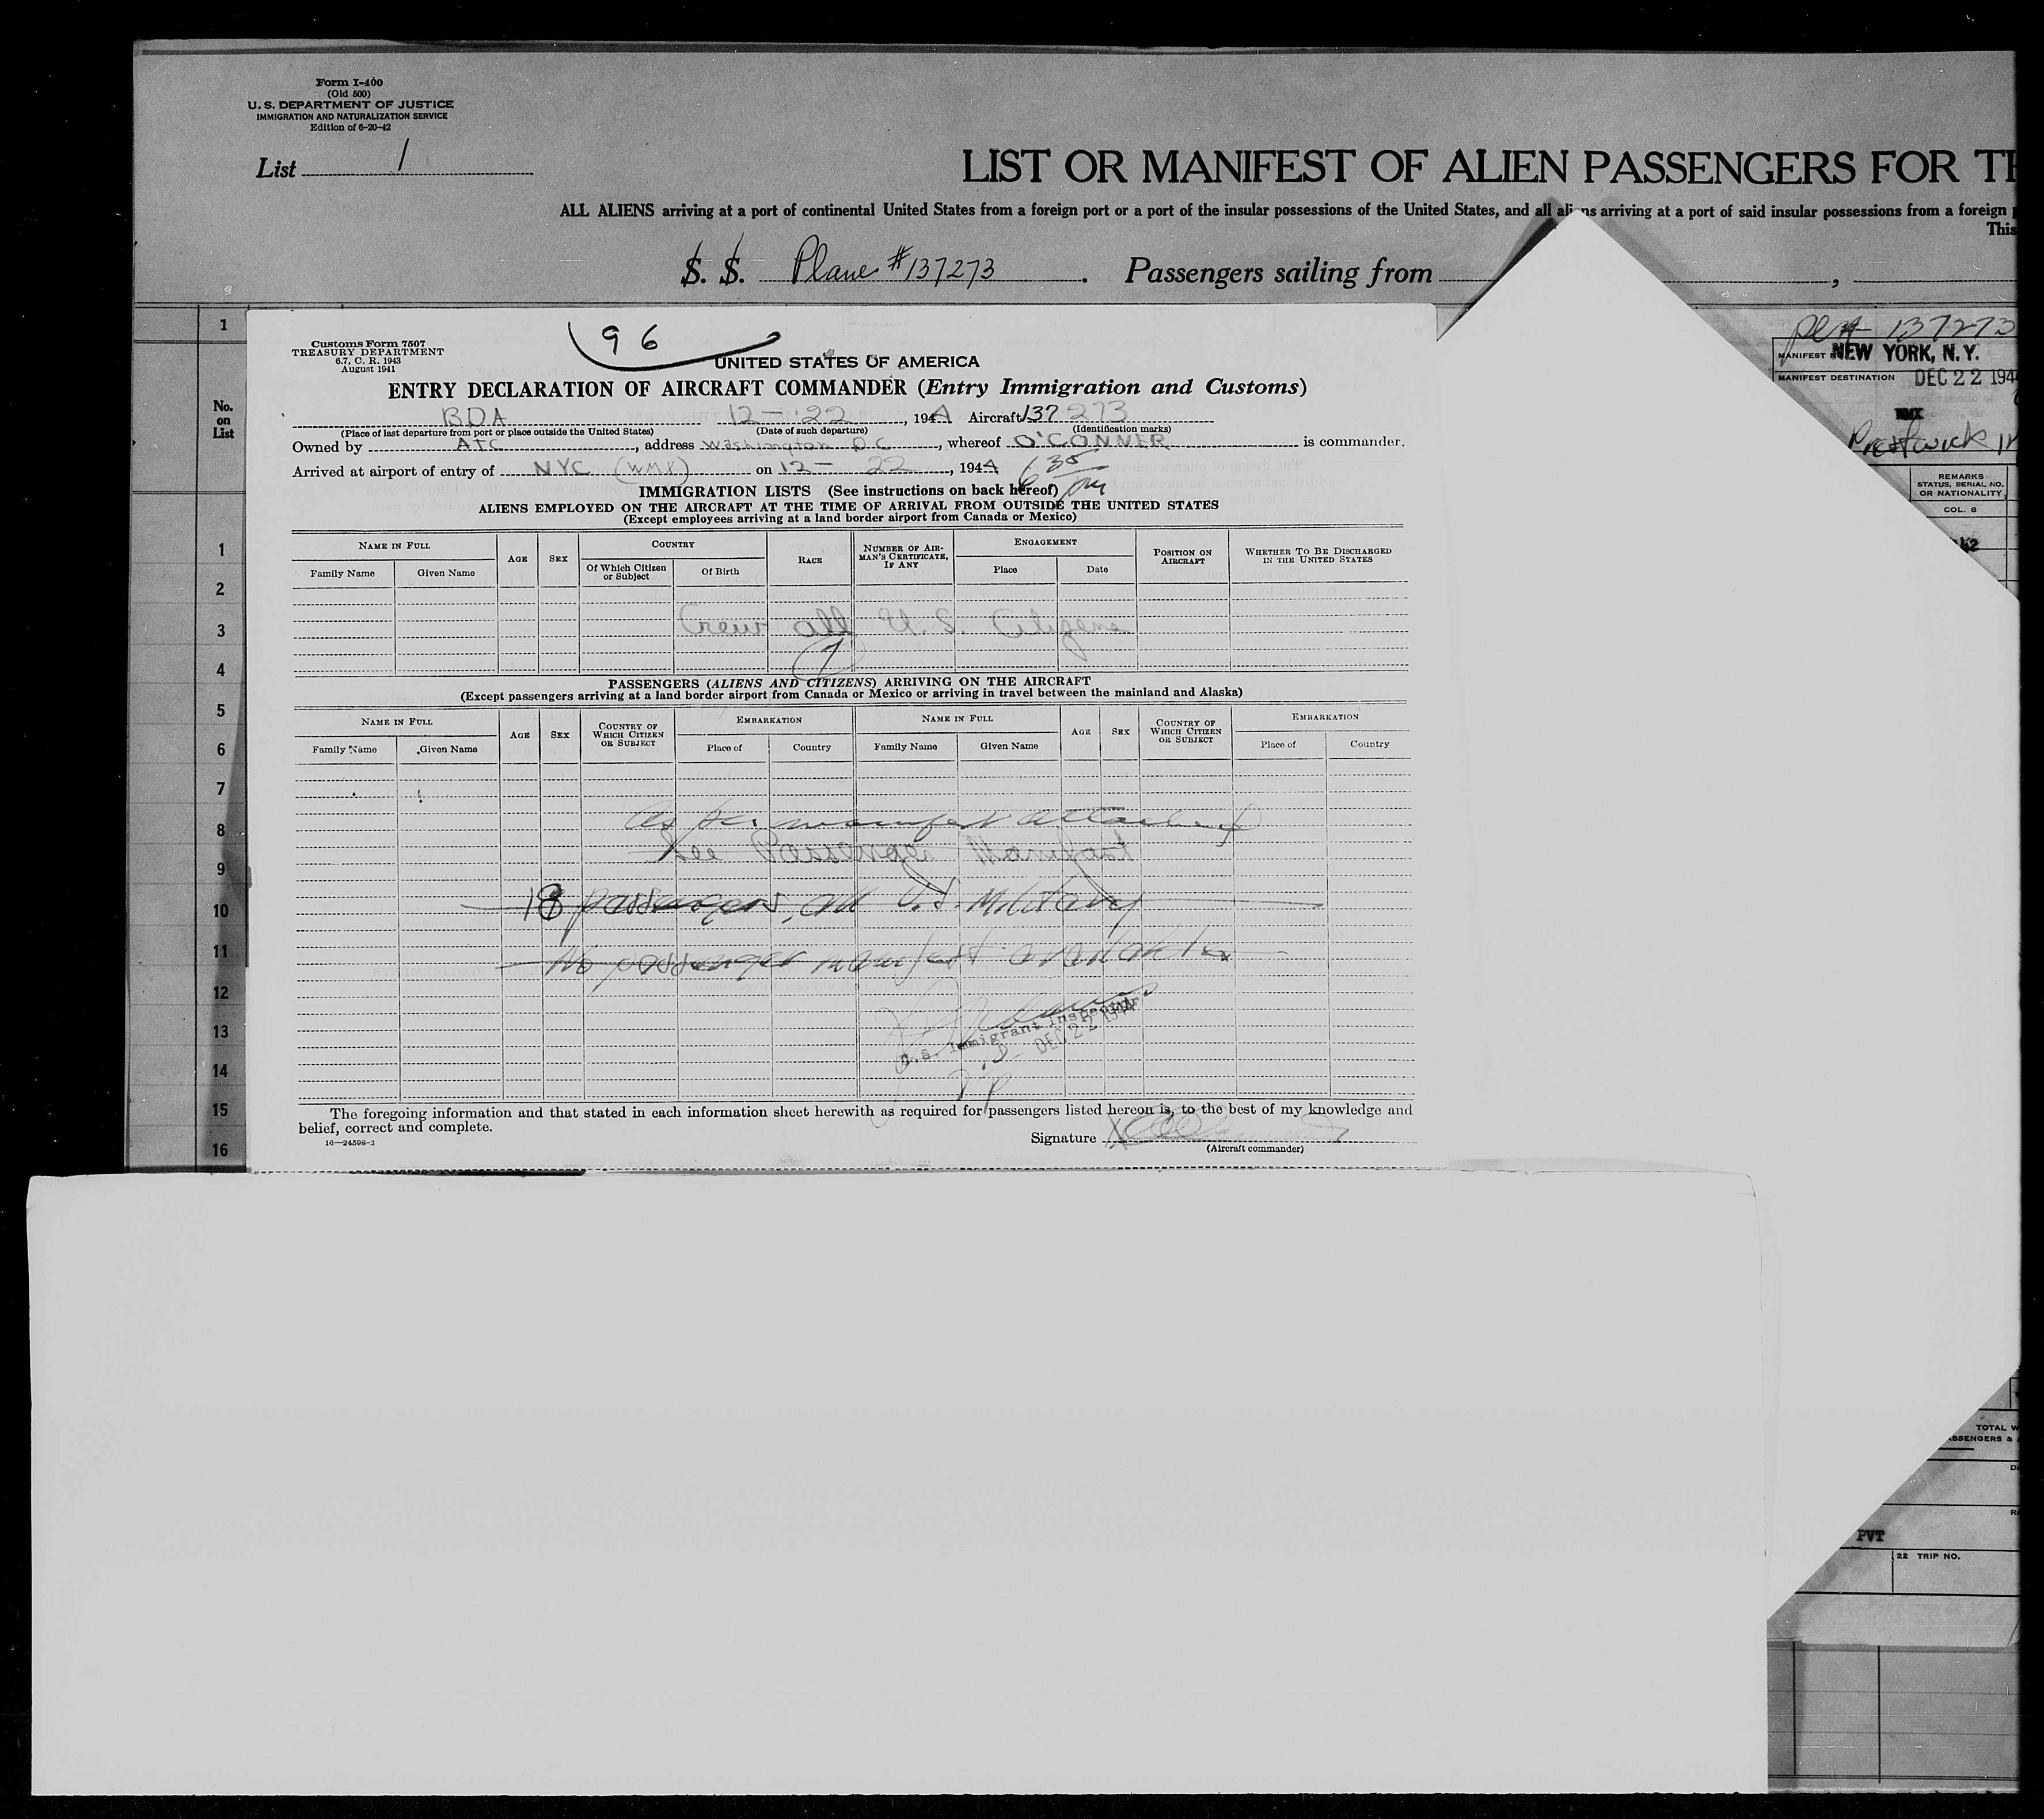 Form I-400
(Old 500)
U. S. DEPARTMENT OF JUSTICE
IMMIGRATION AND NATURALIZATION SERVICE
Edition of 6-20-42
List 1
LIST OR MANIFEST OF ALIEN PASSENGERS FOR TH
ALL ALIENS arriving at a port of continental United States from a foreign port or a port of the insular possessions of the United States, and all aliens arriving at a port of said insular possessions from a foreign
This
S. S. Plane #137273. Passengers sailing from ,
1
No.
on
List
1
2
3
4
5
6
7
8
9
10
11
12
13
14
15
16
96
Customs Form 7507
TREASURY DEPARTMENT
6.7, C. R. 1943
August 1941
UNITED STATES OF AMERICA
ENTRY DECLARATION OF AIRCRAFT COMMANDER (Entry Immigration and Customs)
BDA 12-22, 1944 Aircraft 137273
(Place of last departure from port or place outside the United States) (Date of such departure) (Identification marks)
Owned by ATC, address Washington D C, whereof O'CONNER is commander.
Arrived at airport of entry of NYC (WMX) on 12-22, 1944 6 35 pm
IMMIGRATION LISTS (See instructions on back hereof)
ALIENS EMPLOYED ON THE AIRCRAFT AT THE TIME OF ARRIVAL FROM OUTSIDE THE UNITED STATES
(Except employees arriving at a land border airport from Canada or Mexico)
NAME IN FULL AGE SEX COUNTRY RACE NUMBER OF AIRMAN'S CERTIFICATE, IF ANY ENGAGEMENT POSITION ON AIRCRAFT WHETHER TO BE DISCHARGED IN THE UNITED STATES
Family Name Given Name Of Which Citizen or Subject Of Birth Place Date
Crew all U. S. Citizens
7
PASSENGERS (ALIENS AND CITIZENS) ARRIVING ON THE AIRCRAFT
(Except passengers arriving at a land border airport from Canada or Mexico or arriving in travel between the mainland and Alaska)
NAME IN FULL AGE SEX COUNTRY OF WHICH CITIZEN OR SUBJECT EMBARKATION NAME IN FULL AGE SEX COUNTRY OF WHICH CITIZEN OR SUBJECT EMBARKATION
Family Name Given Name Place of Country Family Name Given Name Place of Country
As per manifest attached
See Passenger Manifest
18 passengers, all U.S. Military
No passenger manifest available
U.S. Immigrant Inspector
DEC 22 1944
The foregoing information and that stated in each information sheet herewith as required for passengers listed hereon is, to the best of my knowledge and
belief, correct and complete.
16—24598-3
Signature
(Aircraft commander)
137273
MANIFEST NEW YORK, N.Y.
MANIFEST DESTINATION DEC 22 194
Prestwick
REMARKS
STATUS, SERIAL NO.
OR NATIONALITY
COL. 8
TOTAL W
SSENGERS &
PVT
22 TRIP NO.